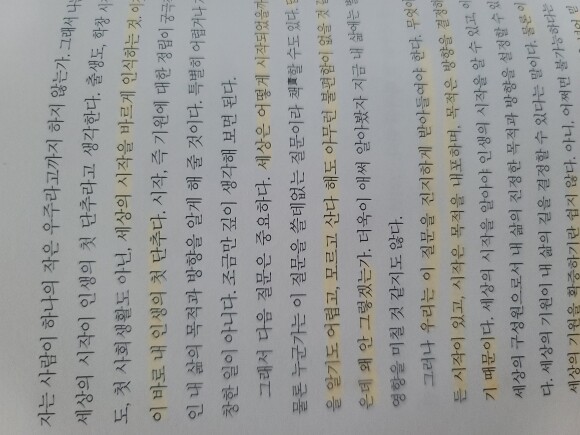 자는 사람이 하나의 작은 우주라고까지 하지 않는가. 그래서 나는
세상의 시작이 인생의 첫 단추라고 생각한다. 출생도, 학창 시
도, 첫 사회생활도 아닌, 세상의 시작을 바르게 인식하는 것, 이것
이 바로 내 인생의 첫 단추다. 시작, 즉 기원에 대한 정립이 궁극
인 내 삶의 목적과 방향을 알게 해 줄 것이다. 특별히 어렵거나
창한 일이 아니다. 조금만 깊이 생각해 보면 된다.
그래서 다음 질문은 중요하다. 세상은 어떻게 시작되었을까
물론 누군가는 이 질문을 쓸데없는 질문이라 책할 수도 있다.
을 알기도 어렵고, 모르고 산다 해도 아무런 불편함이 없을 것
은데 왜 안 그렇겠는가. 더욱이 애써 알아봤자 지금 내 삶에는
영향을 미칠 것 같지도 않다.
그러나 우리는 이 질문을 진지하게 받아들여야 한다. 무엇이
든 시작이 있고, 시작은 목적을 내포하며, 목적은 방향을 결정하
기 때문이다. 세상의 시작을 알아야 인생의 시작을 알 수 있고,
세상의 구성원으로서 내 삶의 진정한 목적과 방향을 설정할 수
다. 세상의 기원이 내 삶의 길을 결정할 수 있다는 말이다. 물론 이
세상의 기원을 확증하기란 쉽지 않다. 아니, 어쩌면 불가능하다는